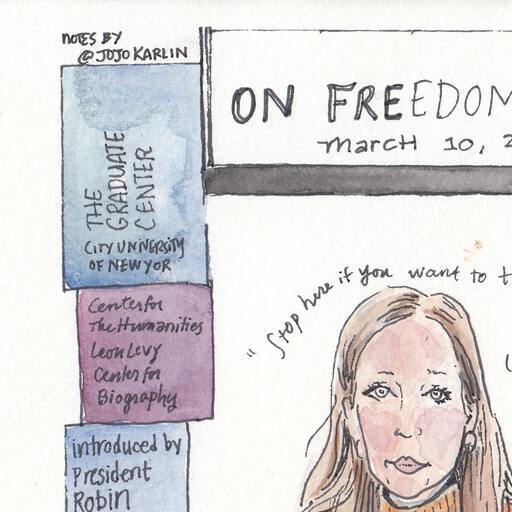 NOTES BY
@JOJOKARLIN
THE
GRADUATE
CENTER
CITY UNIVERSITY
OF NEW YOR
Center for
The Humanities
Leon Levy
Center for
Biography
introduced by
President
Robin
ON FREEDOM
March 10, 2
"Stop here if you want to t